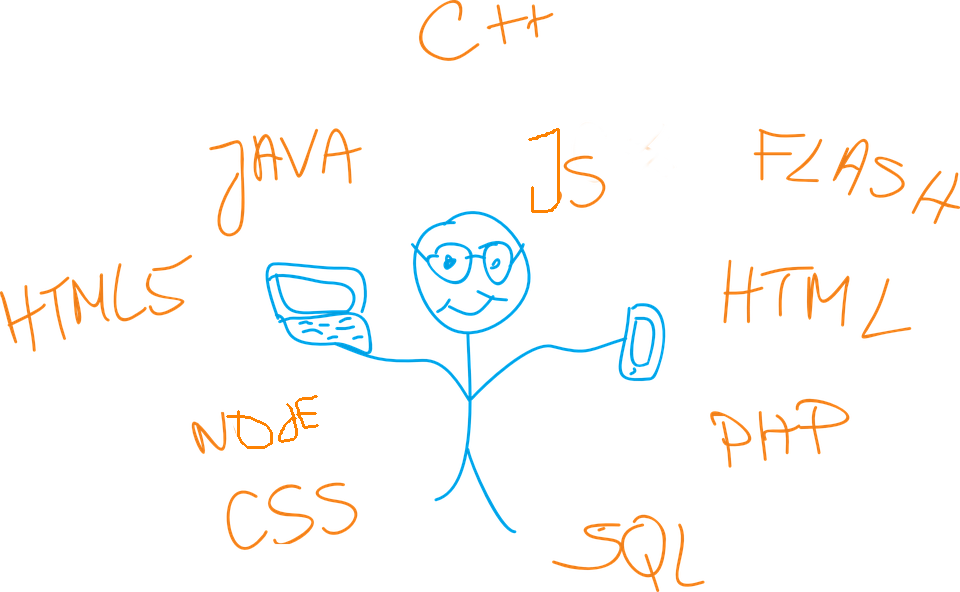 C++
JAVA
JS
FLASH
HTML5
HTML
NODE
PHP
CSS
SQL